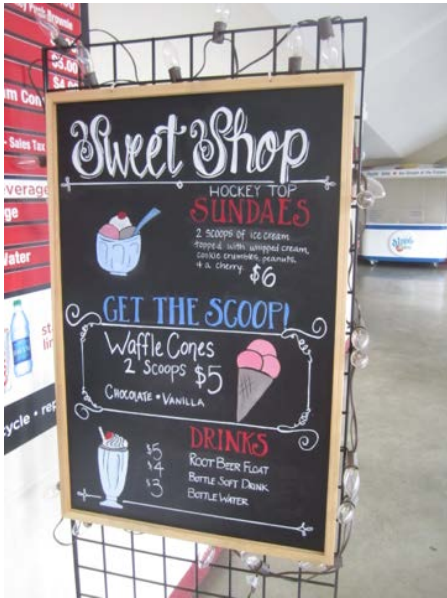 Sweet Shop
HOCKEY TOP
SUNDAES
2 scoops of ice cream
topped with whipped cream,
cookie crumbles, peanuts,
& a cherry. $6
GET THE SCOOP!
Waffle Cones
2 Scoops $5
CHOCOLATE • VANILLA
DRINKS
$5 ROOT BEER FLOAT
$4 BOTTLE SOFT DRINK
$3 BOTTLE WATER
Brownie
$5.00
• Sales Tax
Water